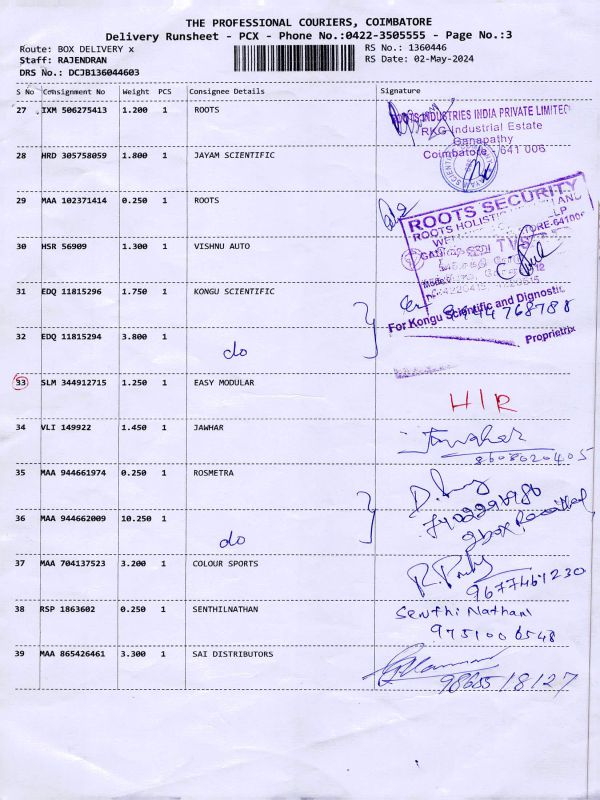 THE PROFESSIONAL COURIERS, COIMBATORE
Delivery Runsheet - PCX - Phone No.:0422-3505555 - Page No.:3
Route: BOX DELIVERY x
RS No.: 1360446
Staff: RAJENDRAN
RS Date: 02-May-2024
DRS No.: DCJB136044603
S No Consignment No Weight PCS Consignee Details Signature
27 IXM 506275413 1.200 1 ROOTS
ROOTS INDUSTRIES INDIA PRIVATE LIMITED
RKG Industrial Estate
Ganapathy
Coimbatore - 641 006
28 HRD 305758059 1.800 1 JAYAM SCIENTIFIC
29 MAA 102371414 0.250 1 ROOTS
ROOTS SECURITY
30 HSR 56909 1.300 1 VISHNU AUTO
31 EDQ 11815296 1.750 1 KONGU SCIENTIFIC
For Kongu Scientific and Dignostic
Proprietrix
32 EDQ 11815294 3.800 1 do
33 SLM 344912715 1.250 1 EASY MODULAR H/R
34 VLI 149922 1.450 1 JAWHAR Jawahar
8608620405
35 MAA 944661974 0.250 1 ROSMETRA
36 MAA 944662009 10.250 1 do
2 box
37 MAA 704137523 3.200 1 COLOUR SPORTS
9677461230
38 RSP 1863602 0.250 1 SENTHILNATHAN Senthi Nathan
9751006548
39 MAA 865426461 3.300 1 SAI DISTRIBUTORS
9865518127